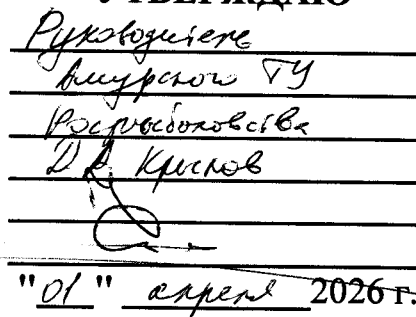 УТВЕРЖДАЮ
Руководитель
Амурского ТУ
Росрыболовства
Крыснов
"01" апреля 2026 г.